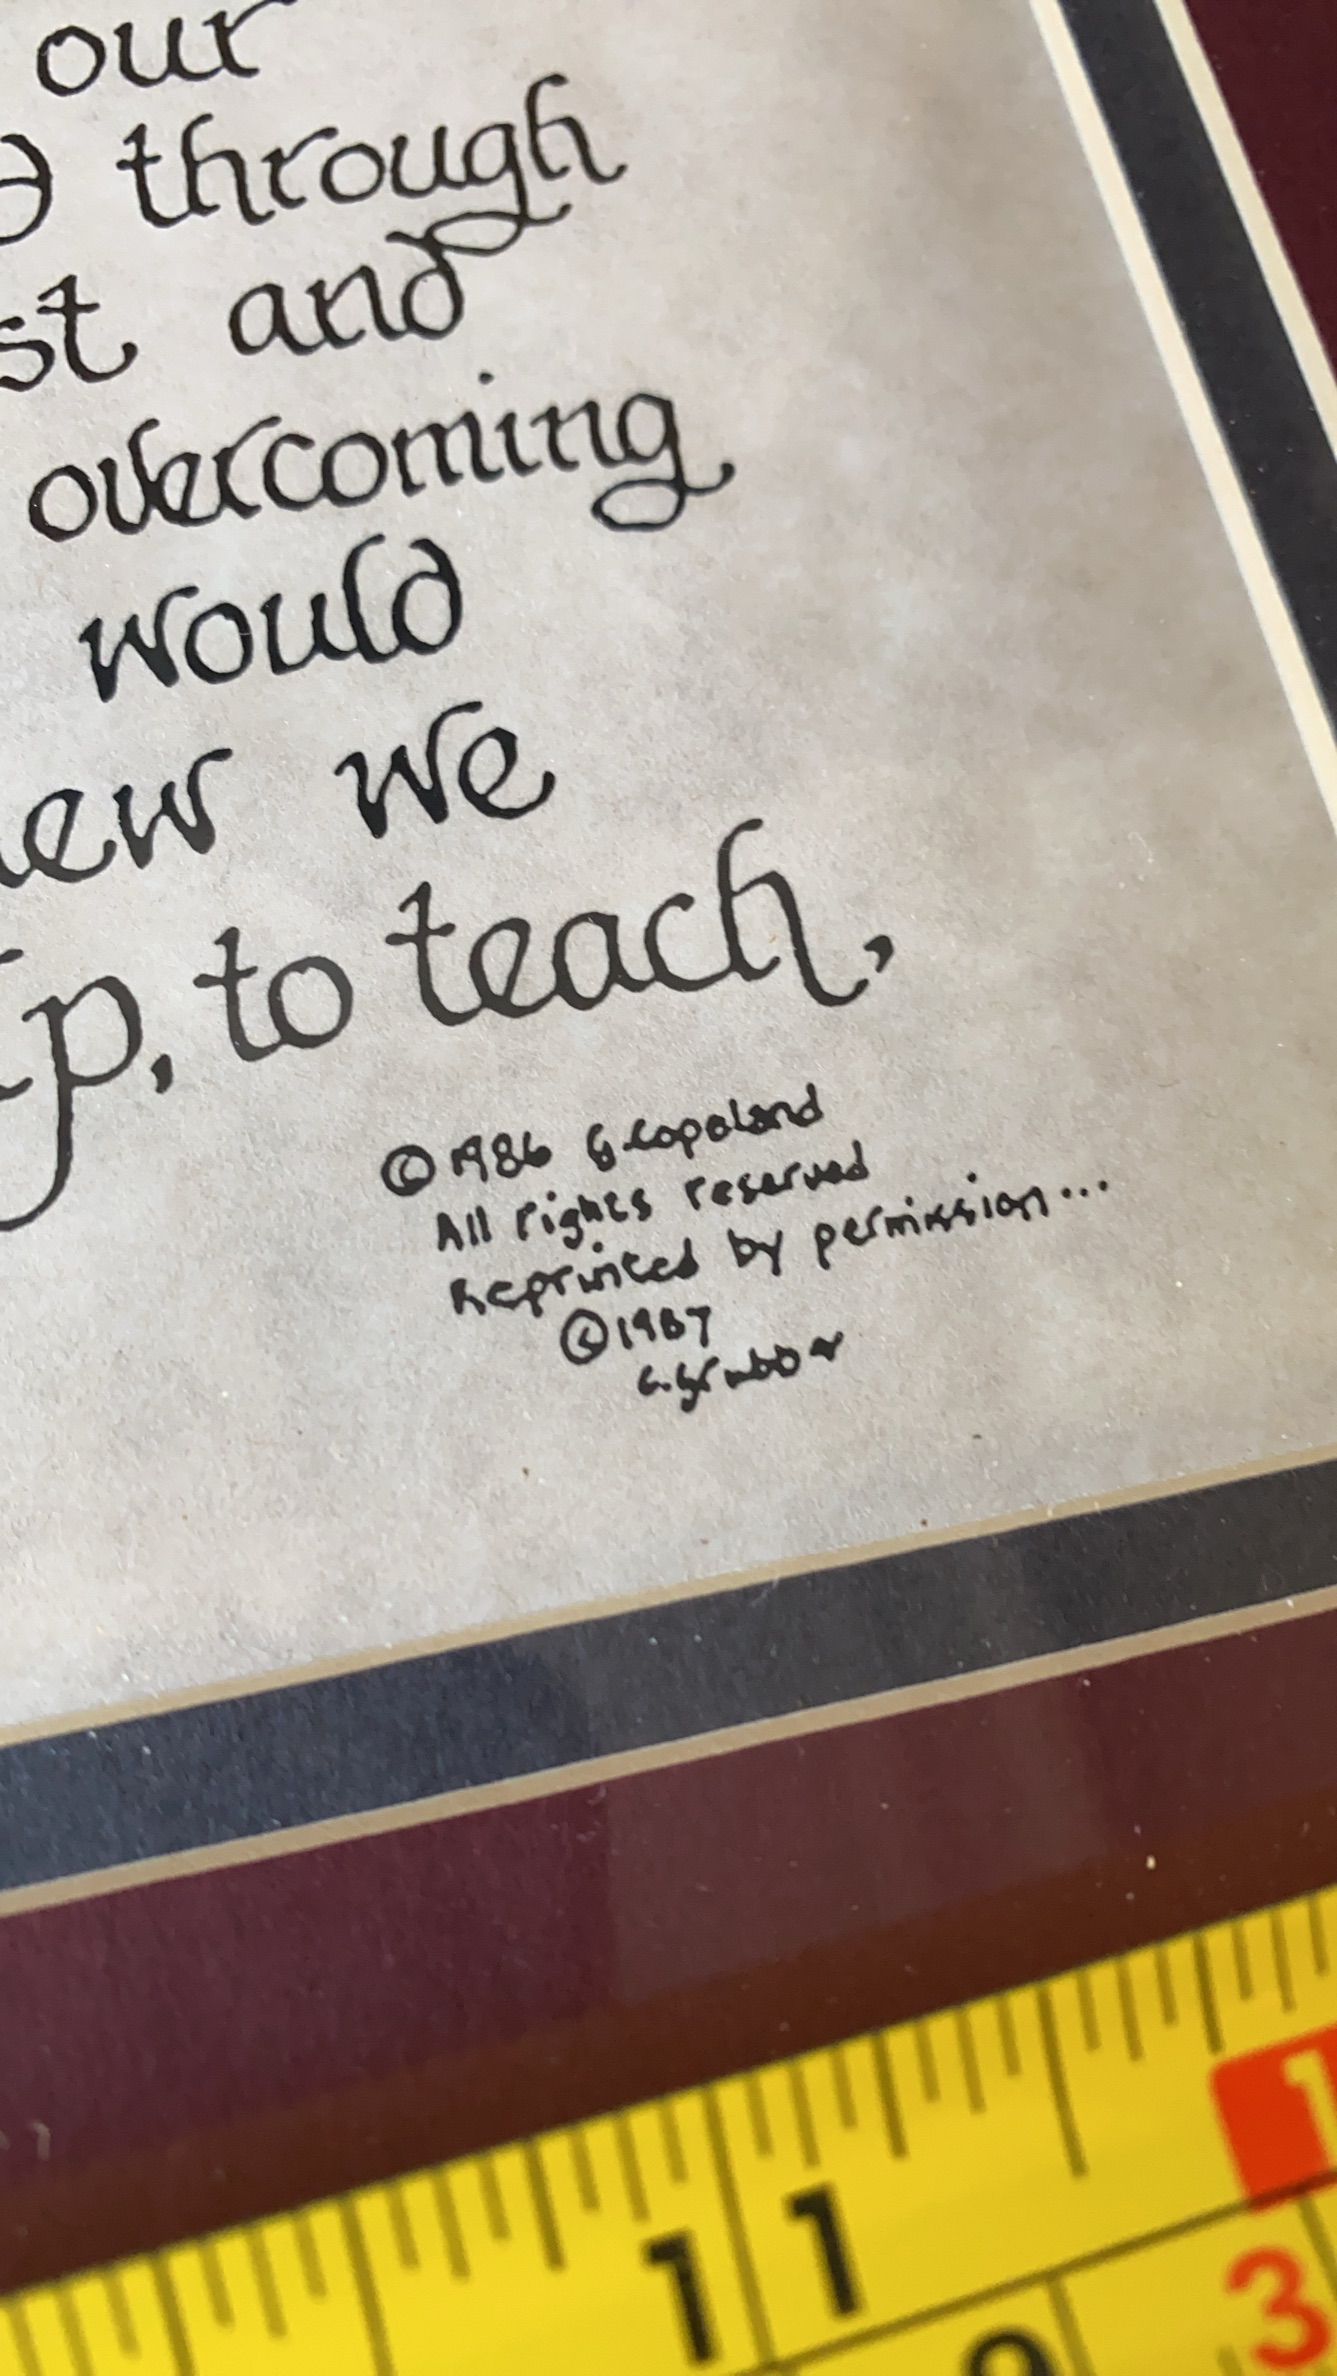 our
through
st and
overcoming
would
ew we
p, to teach,
©1986 G. Copeland
All rights reserved
Reprinted by permission...
©1987
11
1
3